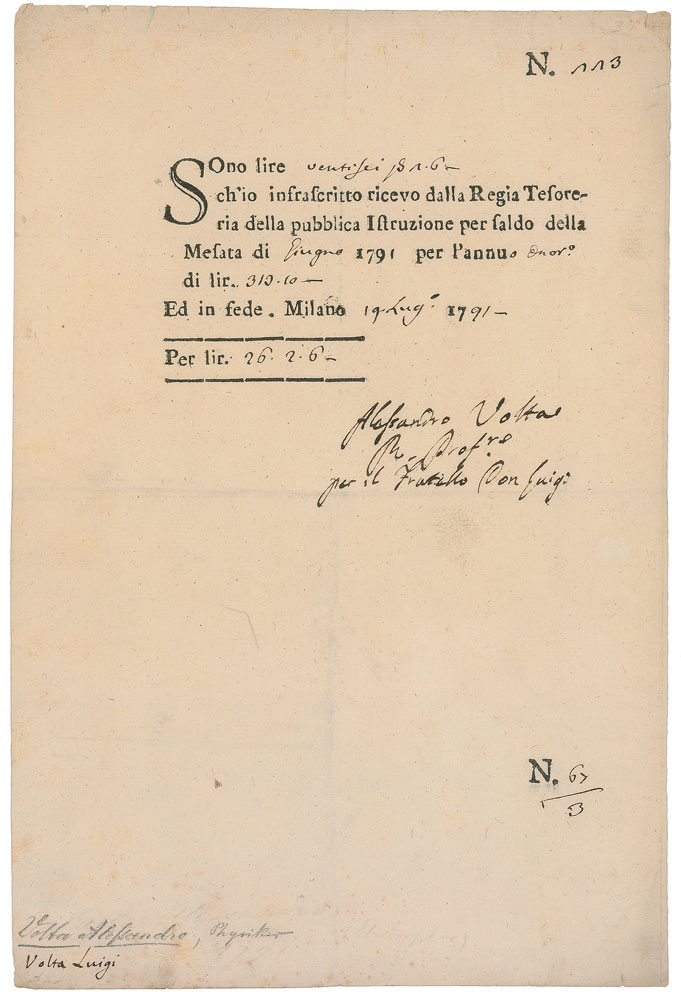 N. 113
SOno lire ventisei ß 2.6
ch'io infrascritto ricevo dalla Regia Tesore-
ria della pubblica Istruzione per saldo della
Mesata di Giugno 1791 per l'annuo onor.º
di lir. 313.10
Ed in fede. Milano 19 Lug.º 1791
Per lir. 26. 2. 6
Alessandro Volta
R. Prof.re
per il Fratello Don Luigi
N. 67
3
Volta Alessandro, Physiker
Volta Luigi